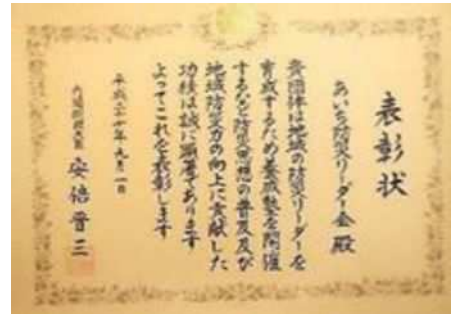 表彰状
あいち防災リーダー会 殿
貴団体は地域の防災リーダーを
育成するため養成塾を開催
するなど防災思想の普及及び
地域防災力の向上に貢献した
功績は誠に顕著であります
よってこれを表彰します
平成二十七年九月一日
内閣総理大臣 安倍晋三